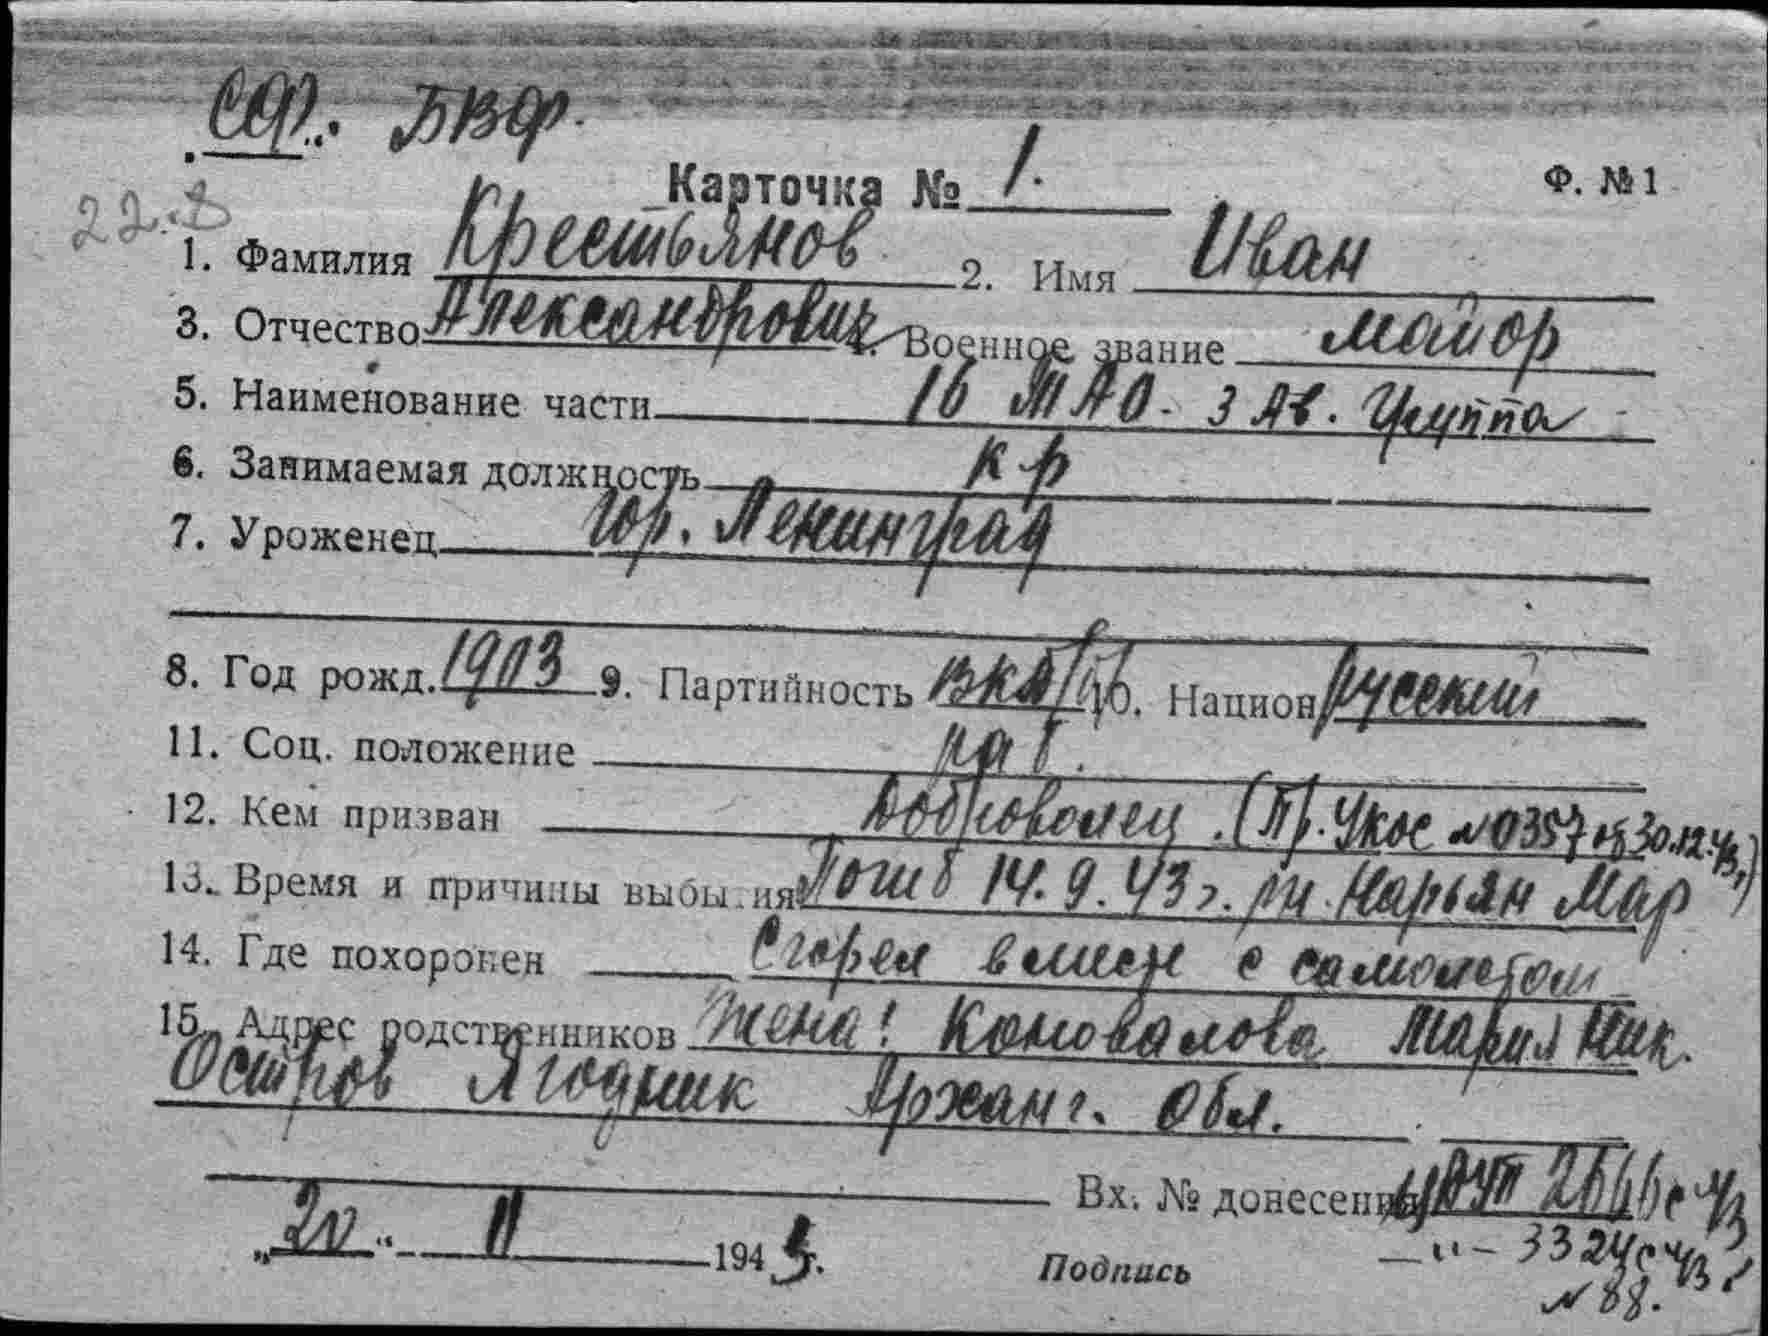 СФ. БВФ.
Карточка № 1. Ф. № 1
22.
1. Фамилия Крестьянов 2. Имя Иван
3. Отчество Александрович 4. Военное звание майор
5. Наименование части 16 ТАО - 3 Ав. Группа
6. Занимаемая должность к р
7. Уроженец гор. Ленинград
8. Год рожд. 1903 9. Партийность ВКП/б/ 10. Национ Русский
11. Соц. положение раб.
12. Кем призван Доброволец. (Пр. Укос № 0357 от 30.12.43)
13. Время и причины выбытия Погиб 14.9.43 г. рн. Нарьян Мар
14. Где похоронен Сгорел вместе с самолетом
15. Адрес родственников Жена: Коновалова Мария Ник.
Остров Ягодник Арханг. Обл.
Вх. № донесения 2666с 43
„20“ 11 194 г. —"— 3324с 43 г.
Подпись № 88.